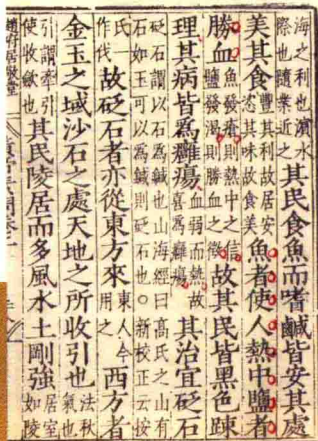 海之利也濱水際也隨業近之其民食魚而嗜鹹皆安其處
美其食豐其利故居安恣其味故食美魚者使人熱中鹽者
勝血魚發瘡則熱中之信鹽發渴則勝血之徵故其民皆黑色踈
理其病皆為癰瘍血弱而熱故喜為癰瘍其治宜砭石
砭石謂以石為鍼也山海經曰高氏之山有石如玉可以為鍼則砭石也○新校正云按
氏一作伐故砭石者亦從東方來東人今用之西方者
金玉之域沙石之處天地之所收引也法秋氣也
引謂牽引使收斂也其民陵居而多風水土剛強居室如陵
趙府居敬堂